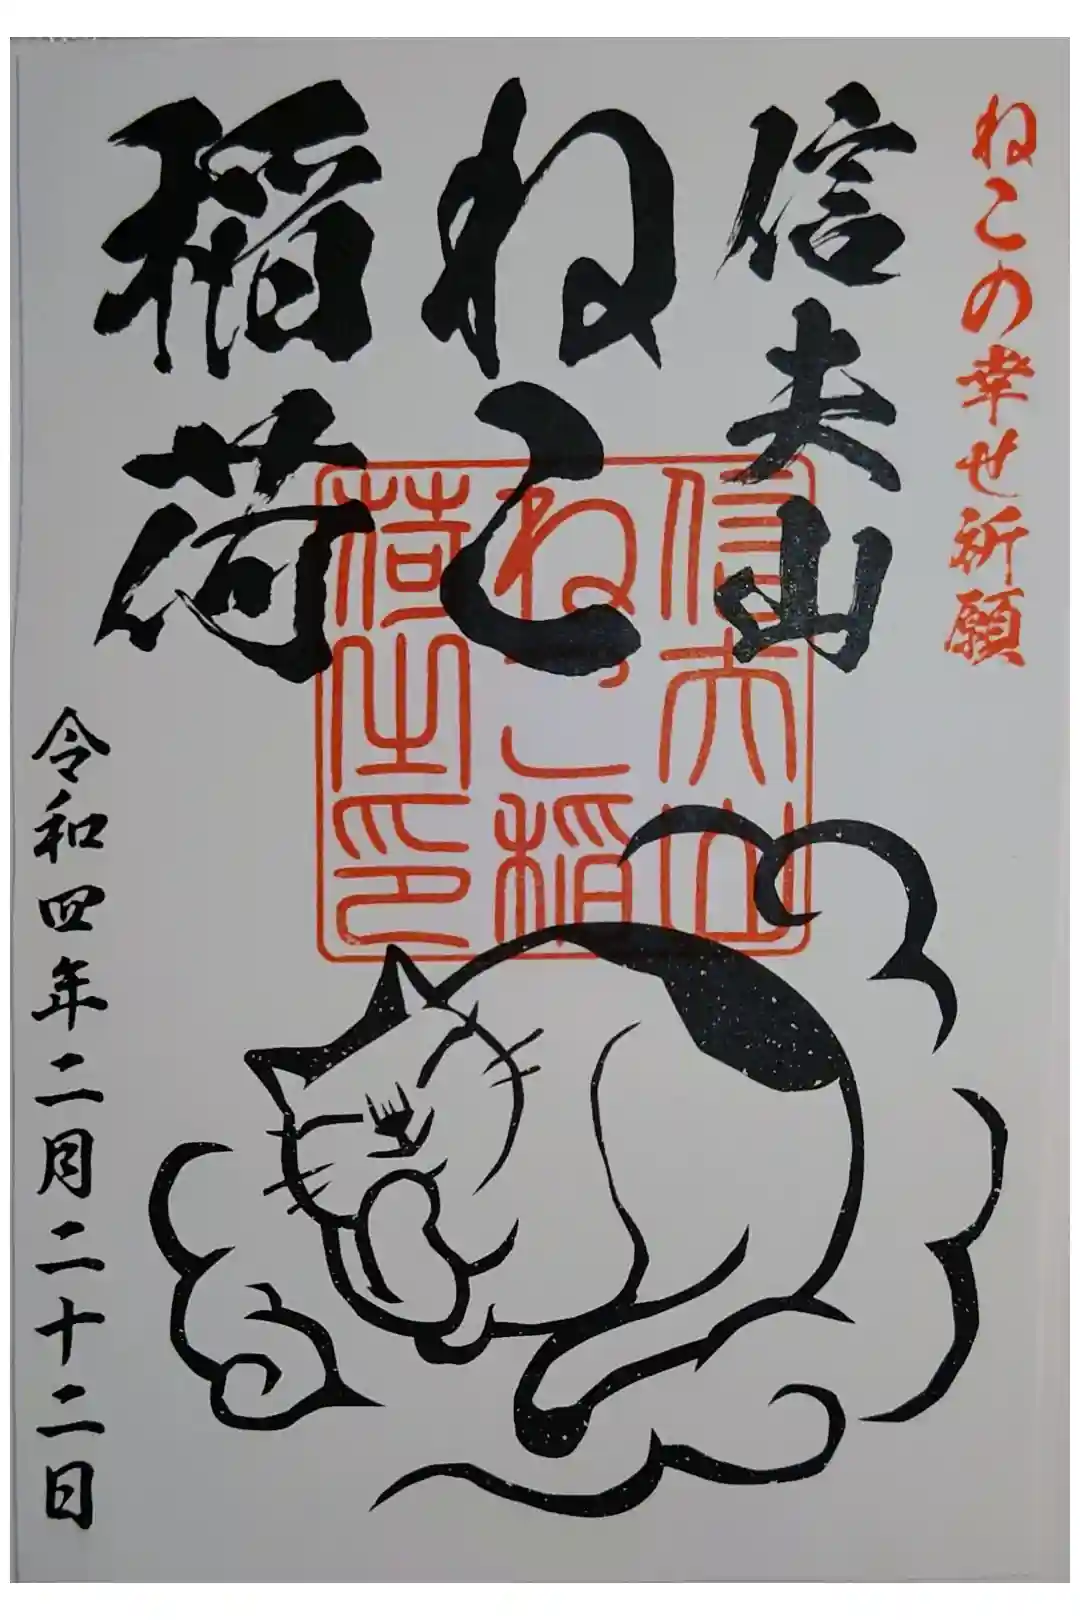 ねこの幸せ祈願
信夫山
ねこ
稲荷
信夫山
ねこ稲
荷之印
令和四年二月二十二日